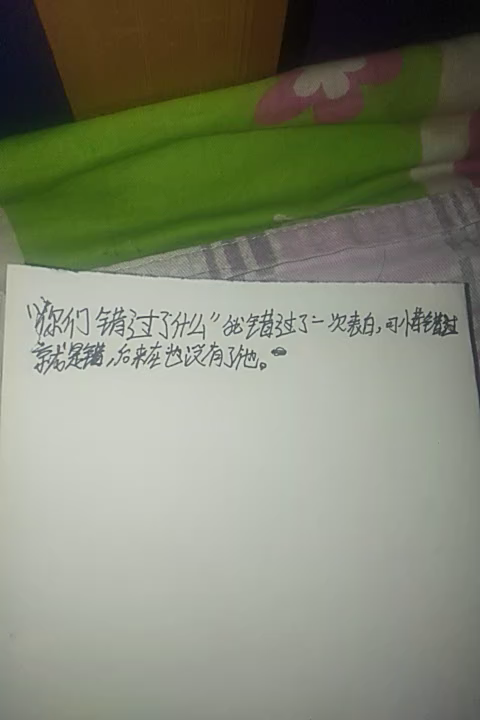 “你们错过了什么”我错过了一次表白，可惜错过
就是错，后来在也没有了他。